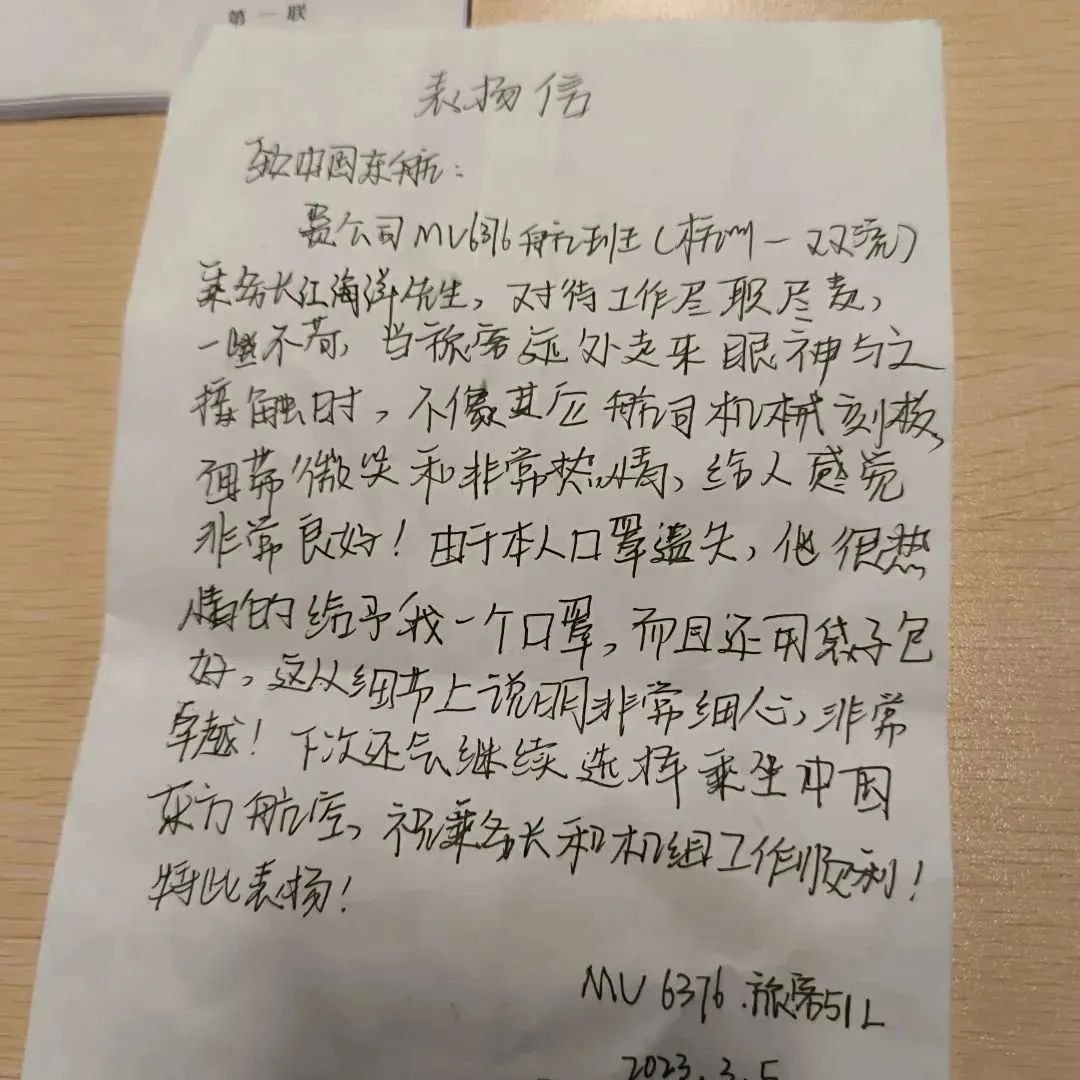 第一联
表扬信
致中国东航：
贵公司MU6376航班（杭州－双流）
乘务长江海洋先生，对待工作尽职尽责，
一丝不苟，当旅客远处走来眼神与之
接触时，不像其它航司机械刻板，
面带微笑和非常热情，给人感觉
非常良好！由于本人口罩遗失，他很热
情的给予我一个口罩，而且还用袋子包
好，这从细节上说明非常细心，非常
卓越！下次还会继续选择乘坐中国
东方航空，祝乘务长和机组工作顺利！
特此表扬！
MU6376.旅客51L
2023.3.5